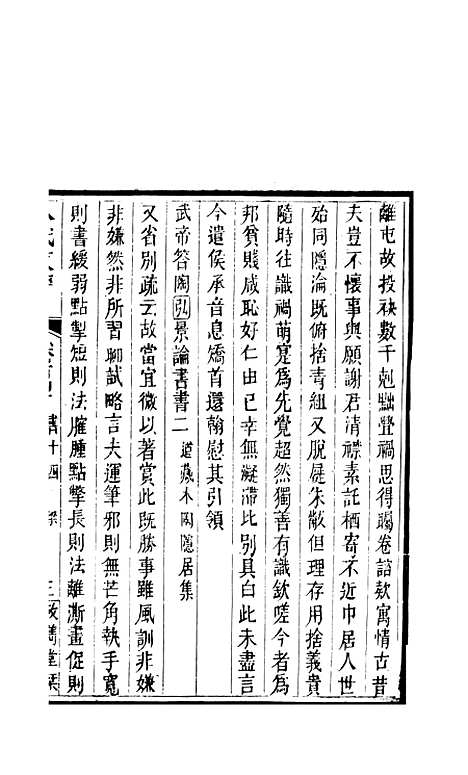 離屯故投袂數千剋黜釁禍思得
卷諮欸寓情古昔
夫豈不懷事與願謝君清襟素託栖寄不近中居人世
殆同隱淪既俯捨青組又脫屣朱敝但理存用捨義貴
隨時往識禍萌寔爲先覺超然獨善有識欽嗟今者爲
邦貧賤咸恥好仁由己幸無凝滯比別具白此未盡言
今遣侯承音息矯首還翰慰其引領
武帝答陶弘景論書書二 道藏本陶隱居集
又省別疏云故當宜微以著賞此既勝事雖風訓非嫌
非嫌然非所習聊試略言夫運筆邪則無芒角執手寬
則書緩弱點掣短則法臃腫點擎長則法離澌畫促則